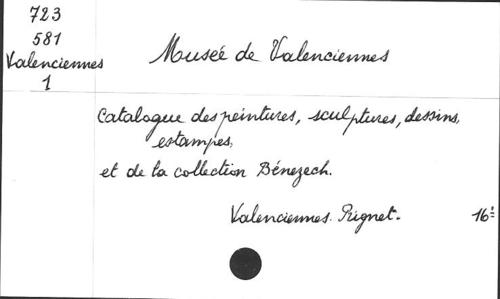 723
581
Valenciennes
1
Musée de Valenciennes
Catalogue des peintures, sculptures, dessins,
estampes,
et de la collection Bénezech.
Valenciennes. Rignet.
16º